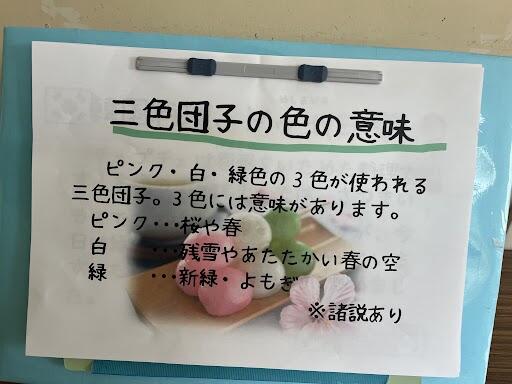 三色団子の色の意味
ピンク・白・緑色の3色が使われる
三色団子。3色には意味があります。
ピンク・・・桜や春
白　・・・残雪やあたたかい春の空
緑　・・・新緑・よもぎ
※諸説あり